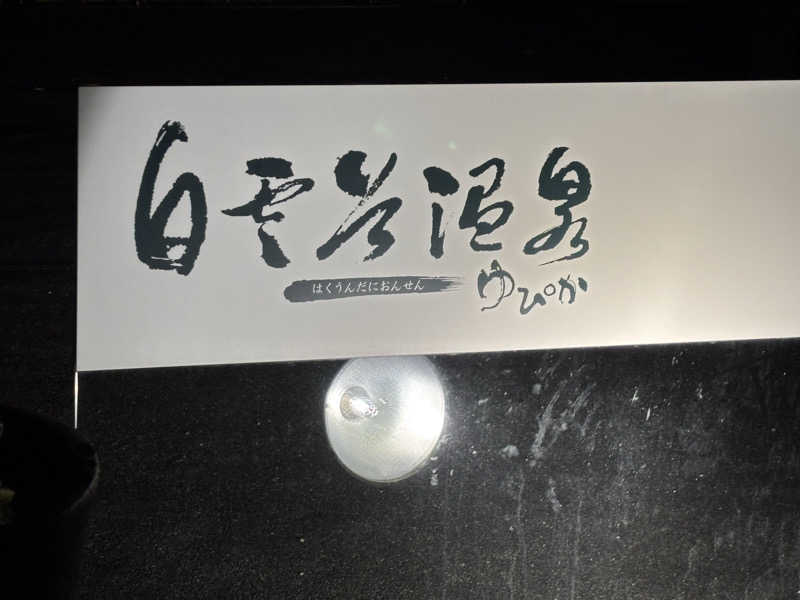 白雲谷温泉
はくうんだにおんせん
ゆぴか